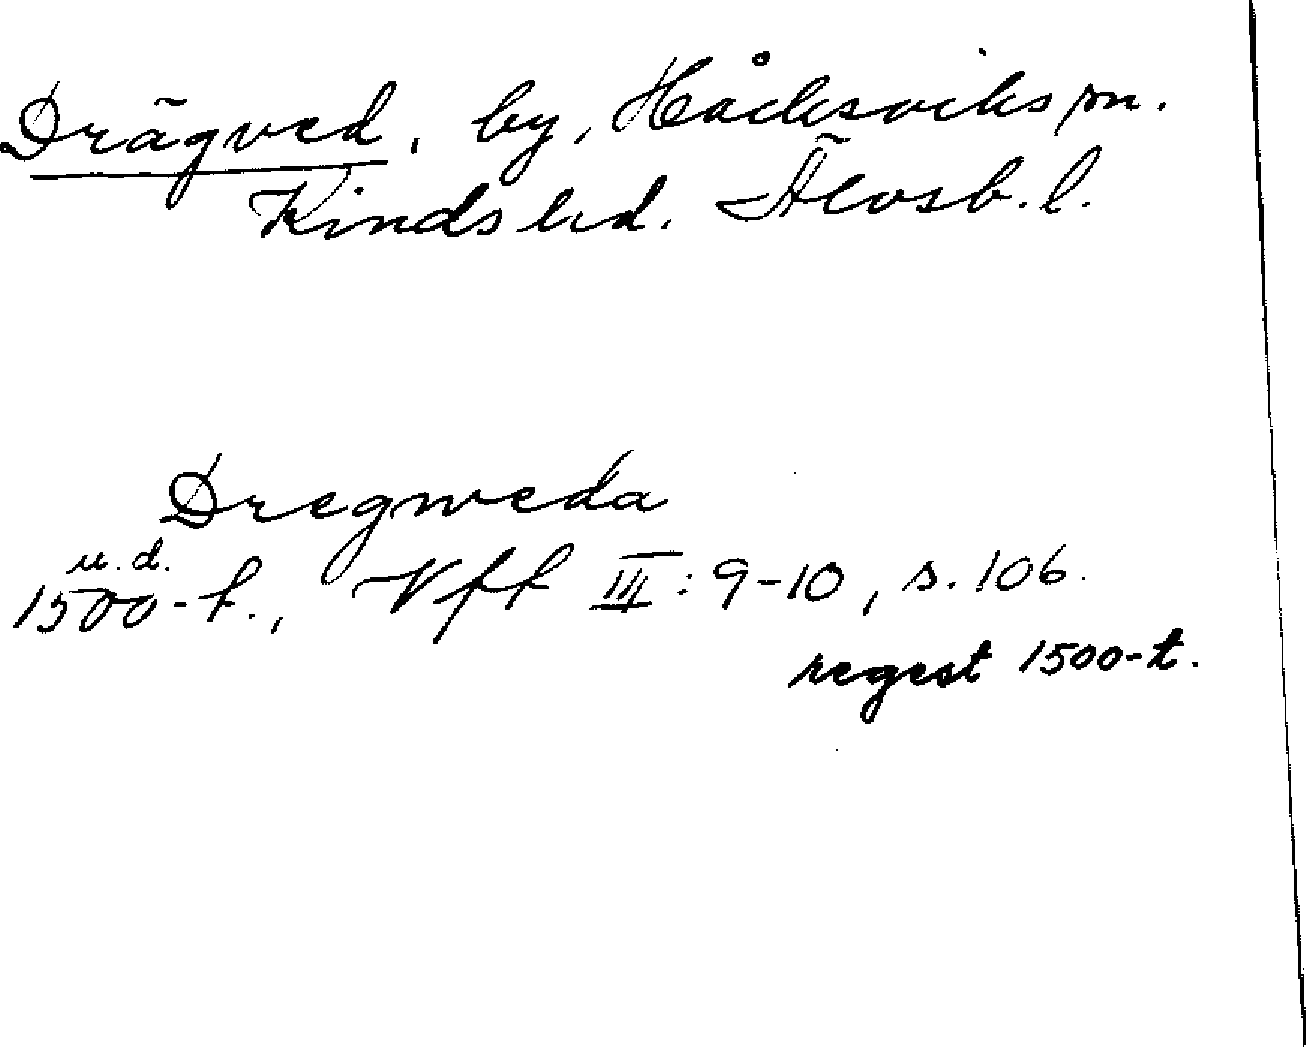 Drägved, by, Håcksviks sn.
Kinds hd. Älvsb. l.
Dregweda
u. d.
1500-t., Vff III: 9-10, s. 106.
regest 1500-t.